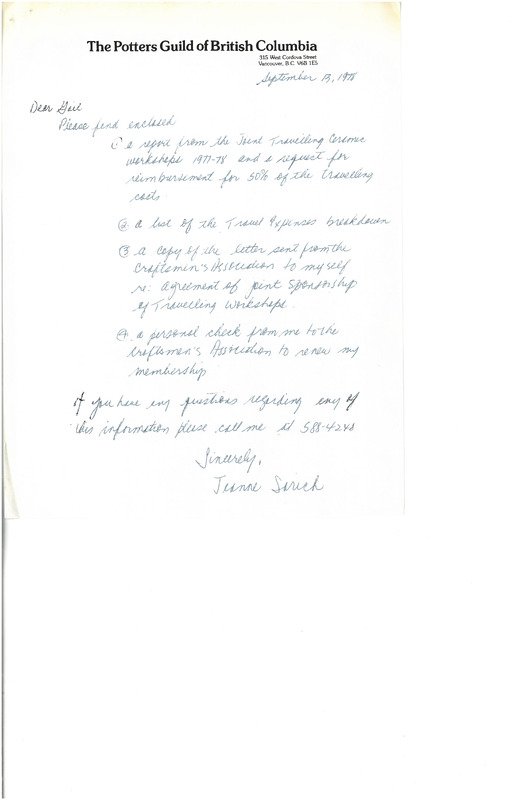 The Potters Guild of British Columbia
315 West Cordova Street
Vancouver, B.C. V6B 1E5
September 13, 1978
Dear Gail
Please find enclosed
① a report from the Joint Travelling Ceramic
workshops 1977-78 and a request for
reimbursement for 50% of the travelling
costs
② a list of the Travel Expenses breakdown
③ a copy of the letter sent from the
Craftsmen's Association to myself
re: agreement of joint sponsorship
of Travelling Workshops.
④ a personal check from me to the
Craftsmen's Association to renew my
membership
If you have any questions regarding any of
this information please call me at 588-4240
Sincerely,
Jeanne Sarich